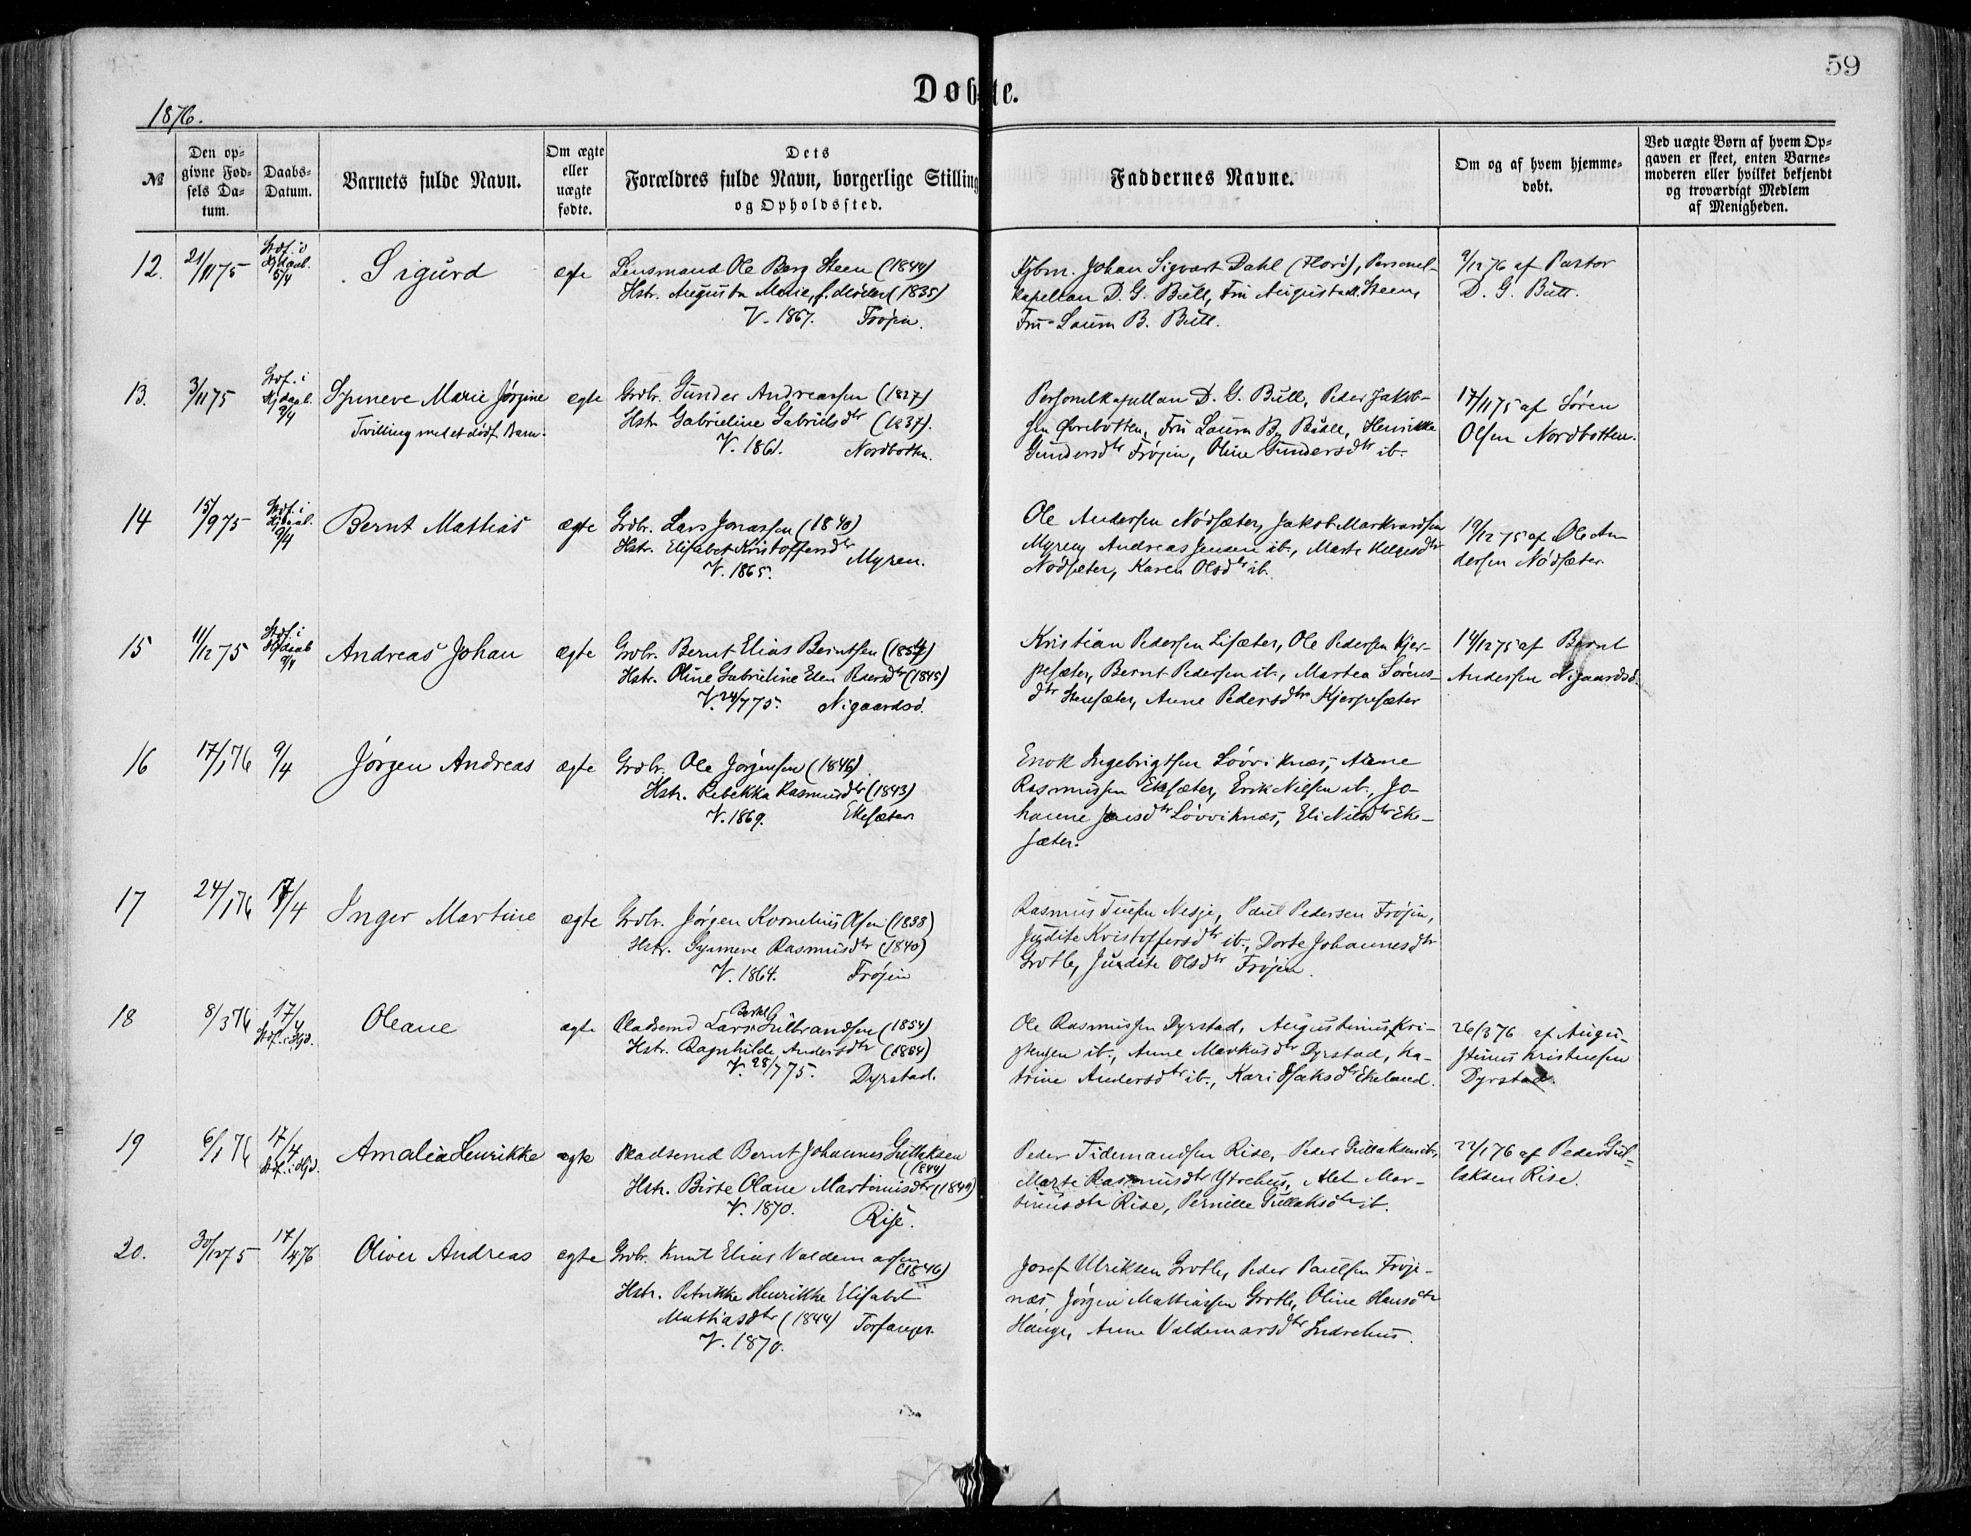 59
Døbte.
1876.
№
Den op-
givne Fød-
sels Da-
tum.
Daabs-
Datum.
Barnets fulde Navn.
Om ægte
eller
uægte
fødte.
Dets
Forældres fulde Navn, borgerlige Stilling
og Opholdssted.
Faddernes Navne.
Om og af hvem hjemme-
døbt.
Ved uægte Børn af hvem Op-
gaven er skeet, enten Barne-
moderen eller hvilket bekjendt
og troværdigt Medlem
af Menigheden.
12. 21/11 75
Stdf. i
Hjdaab.
5/4
Sigurd
ægte
Lensmand Ole Berg Steen (1844)
Hstr. Augusta Marie, f. (1835)
V. 1867. Frøjen.
Kjbm. Johan Sigvart Dahl (Florø), Personel-
kapellan D. G. Bull, Fru Augusta M. Steen,
Fru Laura B. Bull.
9/12 76 af Pastor
D. G. Bull.
13. 3/11 75
Stdf. i
Hjdaab.
9/4
Synneve Marie Jørgine
Tvilling med et dødf. Barn.
ægte
Grdbr. Gunder Andreassen (1827)
Hstr. Gabrieline Gabrielsdtr (1837).
V. 1861. Nordbotten.
Personelkapellan D. G. Bull, Peder Jakob-
sen Ørebotten, Fru Laura B. Bull, Henrikke
Gundersdtr Frøjen, Oline Gundersdtr ib.
17/11 75 af Søren
Olsen Nordbotten.
14 15/9 75
Stdf. i
Hjdaab.
9/4
Bernt Mathias
ægte
Grdbr. Lars Jonassen (1840)
Hstr. Elisabet Kristoffersdtr
V. 1865. Myren.
Ole Andersen Nødsæter, Jakob Markvardsen
Myren, Andreas Jensen ib., Marte Helgesdtr
Nødsæter, Karen Olsdtr ib.
19/12 75 af Ole An-
dersen Nødsæter.
15 11/12 75
Stdf. i
Hjdaab
9/4
Andreas Johan
ægte
Grdbr. Bernt Elias Berntsen (1854)
Hstr. Oline Gabrieline Elen Pedersdtr (1845)
V. 24/7 75. Nigaardsø.
Kristian Pedersen Lisæter, Ole Pedersen Kjer-
pesæter, Bernt Pedersen ib., Martea Sørens-
dtr Stensæter, Anne Pedersdtr Kjerpesæter
14/12 75 af Bernt
Andersen Nigaardsø.
16 17/1 76 9/4
Jørgen Andreas
ægte
Grdbr. Ole Jørgensen (1846)
Hstr. Rebekka Rasmusdtr (1843)
V. 1869. Ekesæter
Enok Ingebrigtsen Løvviknæs, Arne
Rasmussen Ekesæter, Erik Nilsen ib., Jo-
hanne Jensdtr Løvviknæs, Eli Nilsdtr Eke-
sæter.
17 24/1 76 17/4
Inger Martine
ægte
Grdbr. Jørgen Kornelius Olsen (1838)
Hstr. Synneve Rasmusdtr (1840)
V. 1864. Frøjen
Rasmus Nesje, Paul Pedersen Frøjen,
Judite Kristoffersdtr ib., Dorte Johannesdtr
Grotle, Judite Olsdtr Frøjen.
18 8/3 76 17/4
Stdf. i Hjd.
Oleane
ægte
Pladsemd Lars Bertel Gulbrandsen (1854)
Hstr. Ragnhilde Andersdtr (1854)
V. 28/7 75. Dyrstad.
Ole Rasmussen Dyrstad, Augustinus Kri-
stensen ib., Anne Markusdtr Dyrstad, Ka-
trine Andersdtr ib., Kari Isaksdtr Ekeland.
26/3 76 af Augu-
stinus Kristensen
Dyrstad.
19 6/1 76 17/4
Stdf. i Hjd.
Amalia Henrikke
ægte
Pladsemd Bernt Johannes Gullaksen
(1844)
Hstr. Birte Olane Martinusdtr (1849)
V. 1870.
Rise.
Peder Tidemandsen Rise, Peder Gullaksen ib.,
Marte Rasmusdtr Ytrehus, Alet Mar-
tinusdtr Rise, Pernille Gullaksdtr ib.
22/1 76 af Peder Gul-
laksen Rise.
20. 30/12 75 17/4 76
Oliver Andreas
ægte
Grdbr. Knut Elias Valdemarsen
(1846)
Hstr. Petrikke Henrikke Elisabet
Mathiasdtr (1844) Torfanger.
V. 1870.
Josef Ulriksen Grotle, Peder Paulsen Frøje-
næs, Jørgen Mathiassen Grotle, Oline Hansdtr
Hauge, Anne Valdemarsdtr Indrehus.